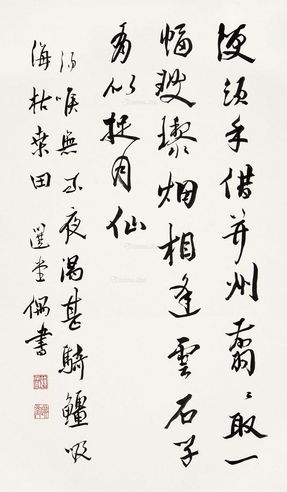 便須手借并州翦〻取一
幅玻瓈烟相逢雲石子
有似捉月仙
酒喉無耐夜渴甚騎䲔吸
海枯桑田 選堂偶書